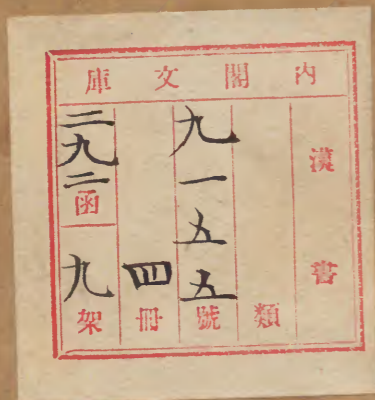 內閣文庫
漢書
類
九一五五號
四冊
二九二函
九架